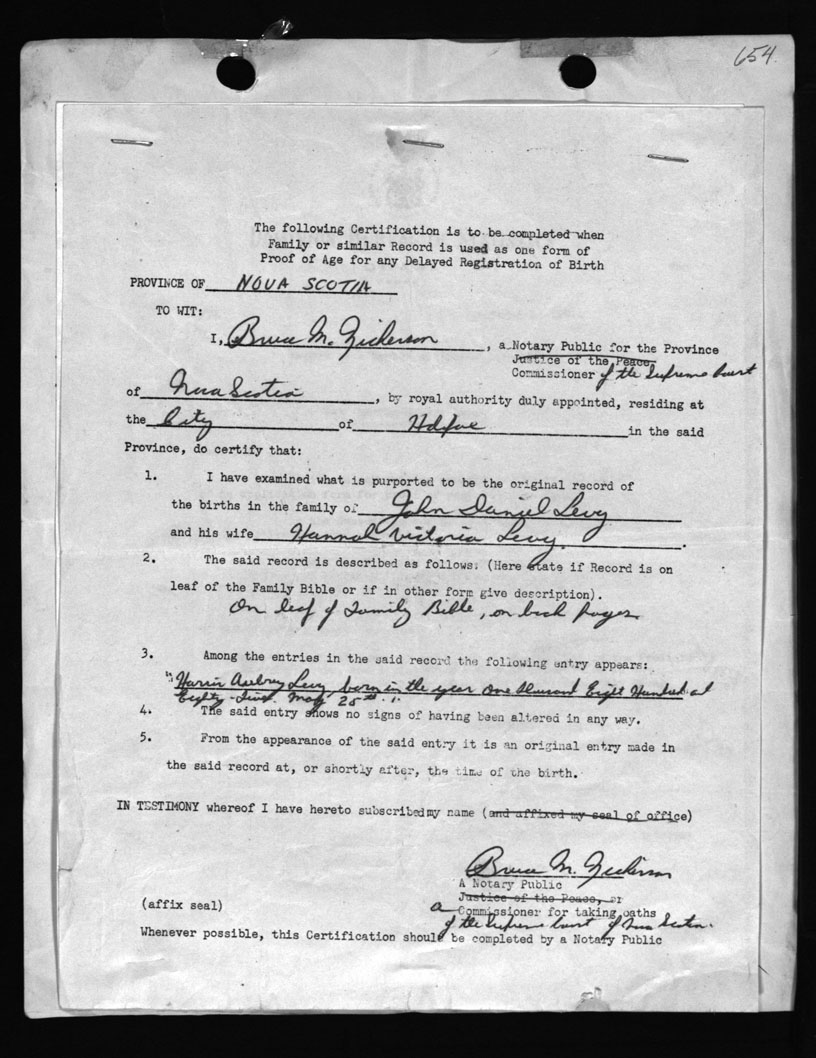 654.
The following Certification is to be completed when
Family or similar Record is used as one form of
Proof of Age for any Delayed Registration of Birth
PROVINCE OF NOVA SCOTIA
TO WIT:
I, Bruce M. Nickerson, a Notary Public for the Province
Justice of the Peace,
Commissioner of the Supreme Court
of Nova Scotia, by royal authority duly appointed, residing at
the City of Halifax in the said
Province, do certify that:
1. I have examined what is purported to be the original record of
the births in the family of John Daniel Levy
and his wife Hannah Victoria Levy.
2. The said record is described as follows: (Here state if Record is on
leaf of the Family Bible or if in other form give description).
On leaf of Family Bible, on back pages
3. Among the entries in the said record the following entry appears:
" Aubrey Levy, born in the year One thousand Eight Hundred and
Eighty- May 25th."
4. The said entry shows no signs of having been altered in any way.
5. From the appearance of the said entry it is an original entry made in
the said record at, or shortly after, the time of the birth.
IN TESTIMONY whereof I have hereto subscribed my name (and affixed my seal of office)
Bruce M. Nickerson
A Notary Public
Justice of the Peace, or
(affix seal)
a Commissioner for taking oaths
of the Supreme Court of Nova Scotia.
Whenever possible, this Certification should be completed by a Notary Public